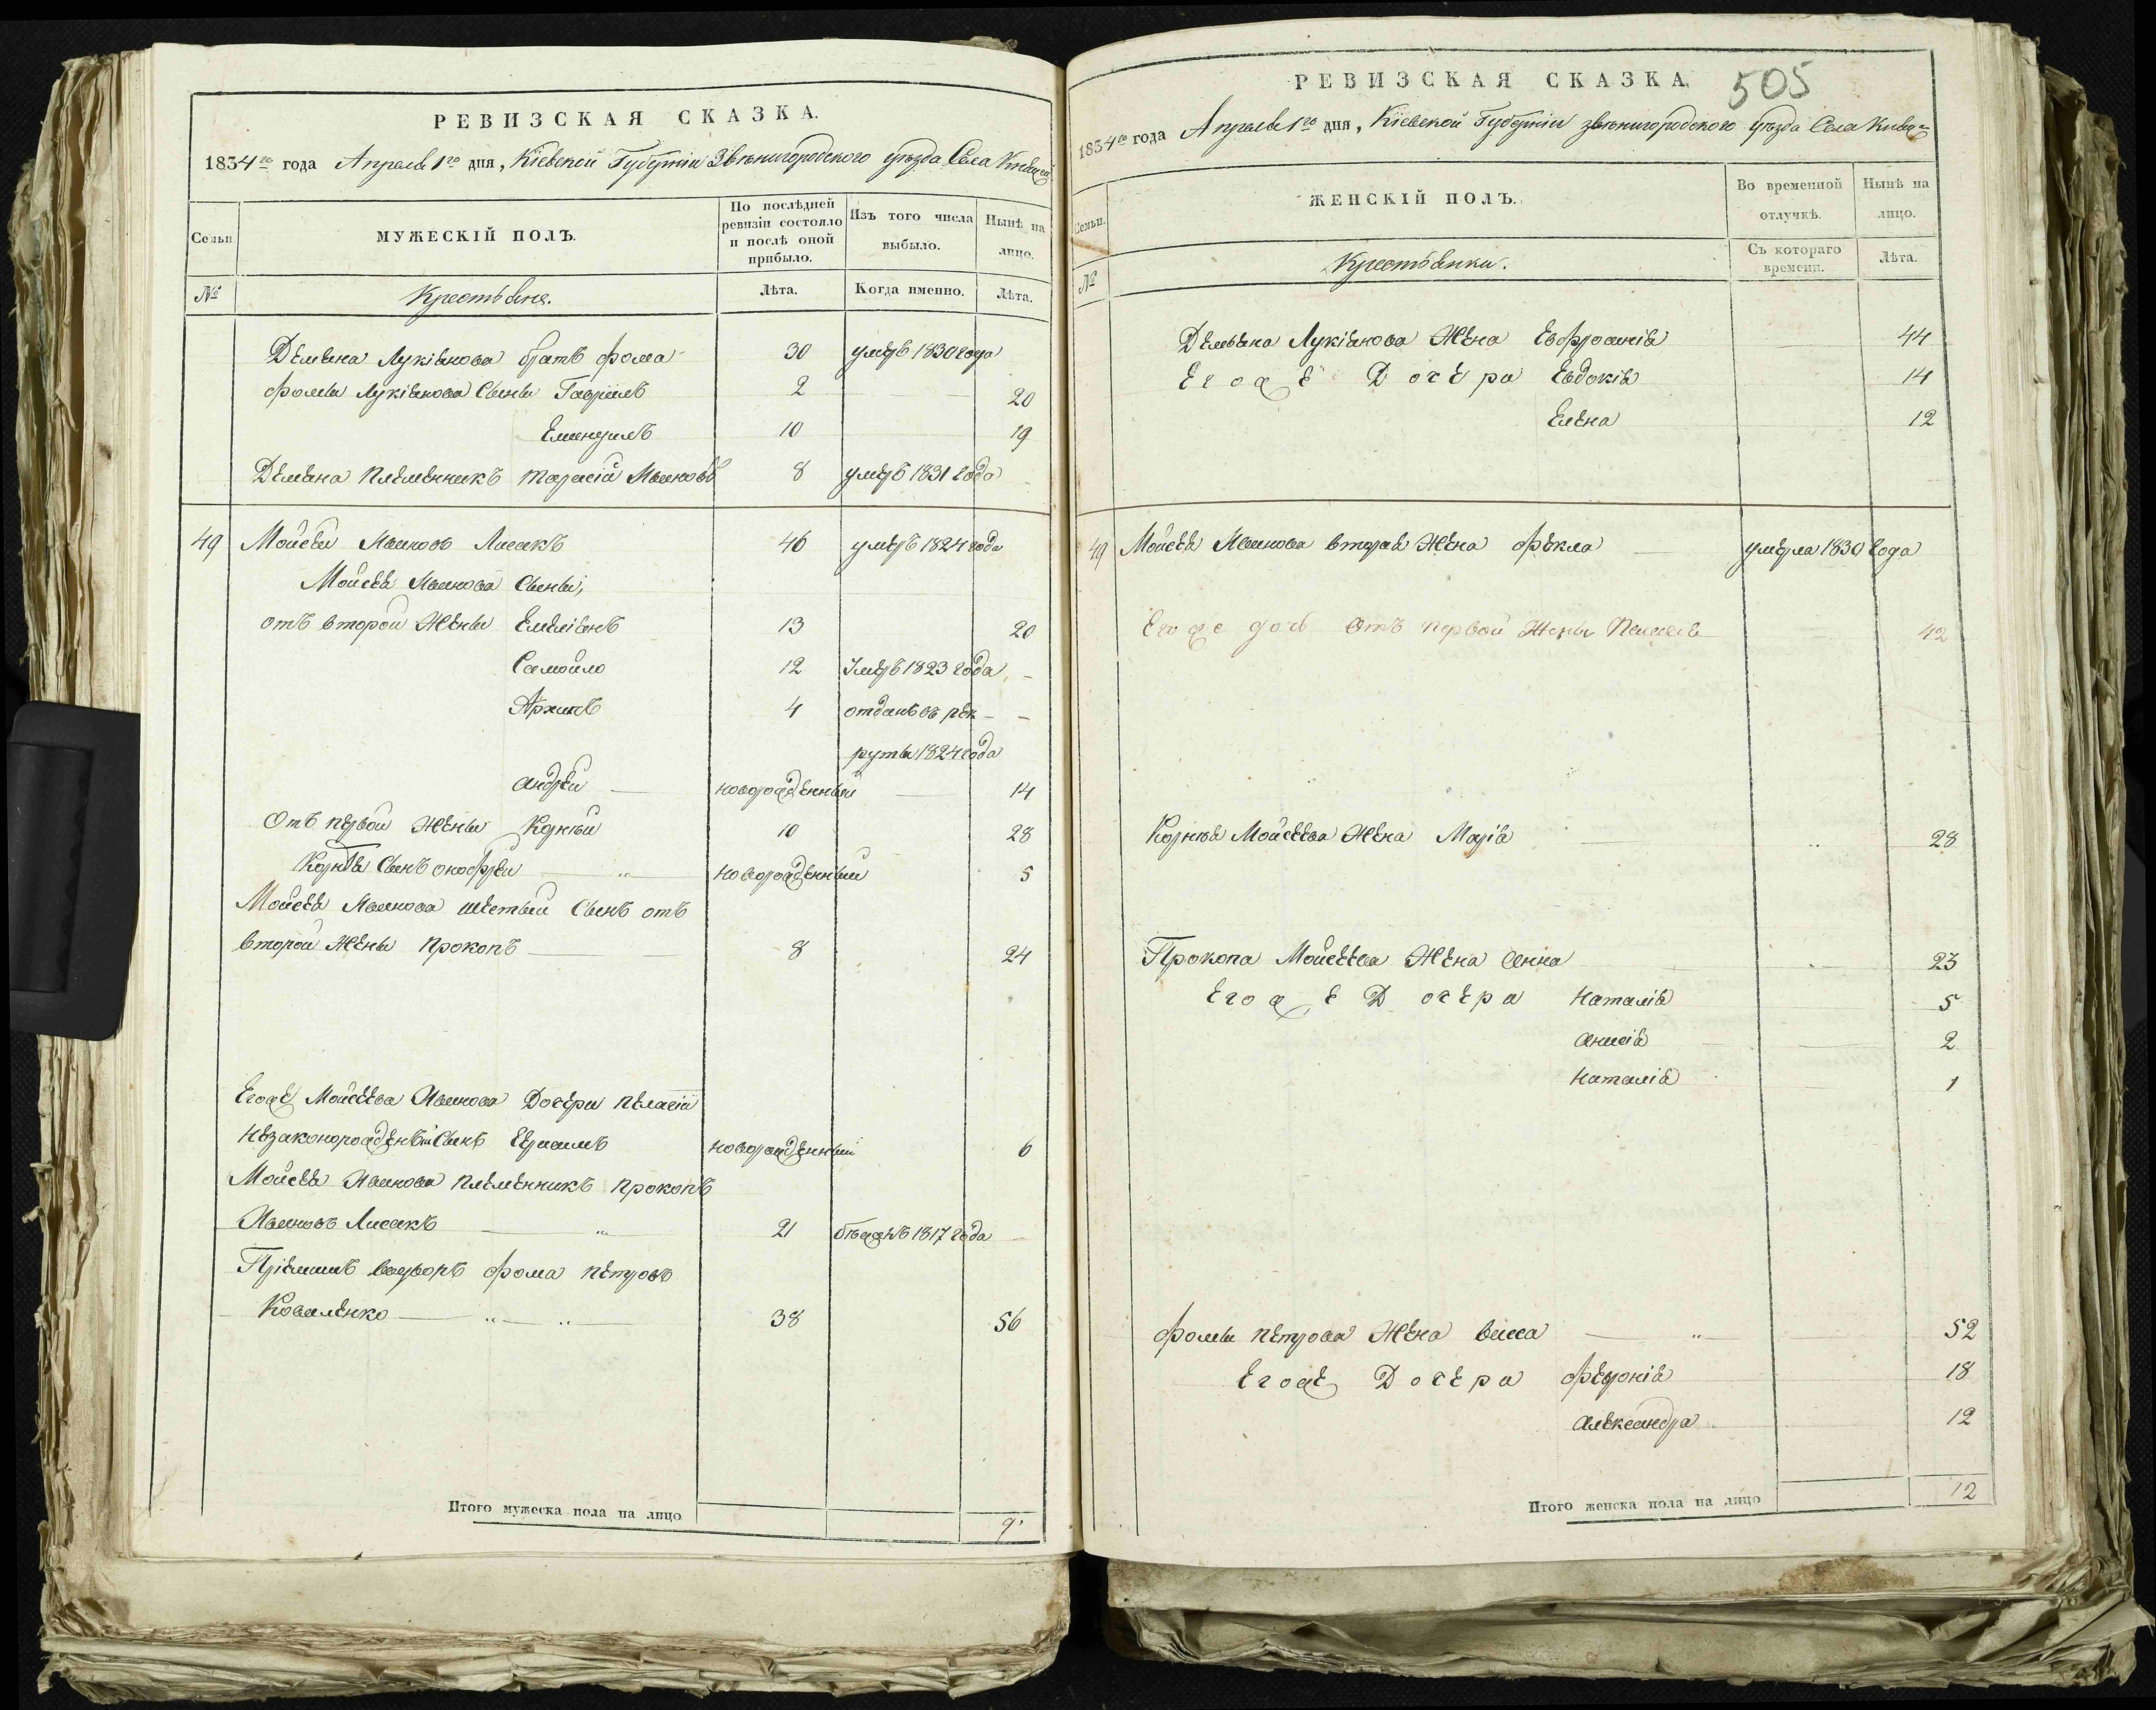 РЕВИЗСКАЯ СКАЗКА.
1834го года Апреля 1го дня, Кіевской Губерніи Звѣнигородского уѣзда Села
Семьи
МУЖЕСКІЙ ПОЛЪ.
По послѣдней ревизіи состояло и послѣ оной прибыло.
Изъ того числа выбыло.
Нынѣ на лицо.
№
Крестьяне.
Лѣта.
Когда именно.
Лѣта.
Демяна Лукіянова братъ фома 30 умеръ 1830 года
фомы Лукіянова Сыны Гавріилъ 2 20
Емануилъ 10 19
Демяна племенникъ тарасій Ивановъ 8 умеръ 1831 года
49 Мойсей Ивановъ Лисакъ 46 умеръ 1824 года
Мойсея Иванова Сыны,
отъ второй Жены Емеліянъ 13 20
Самойло 12 Умеръ 1823 года
Архипъ 4 отданъ въ рек-
руты 1824 года
андрей новорожденный 14
Отъ первой жены Корнѣй 10 28
Корнѣя Сынъ онофрей новорожденный 5
Мойсея Иванова шестый Сынъ отъ
второй Жены прокопъ 8 24
Егоже Мойсеева Иванова Дочери пелагіи
незаконорожденый Сынъ новорожденный 6
Мойсея Иванова племенникъ прокопъ
Ивановъ Лисакъ 21 бѣжалъ 1817 года
Пріемышъ фома петровъ
Коваленко 38 56
Итого мужеска пола на лицо 9
РЕВИЗСКАЯ СКАЗКА. 505
1834го года Апреля 1го дня, Кіевской Губерніи звѣнигородского уѣзда Села
Семьи.
ЖЕНСКІЙ ПОЛЪ.
Во временной отлучкѣ.
Нынѣ на лицо.
№
Крестьянки.
Съ котораго времени.
Лѣта.
Демьяна Лукіянова Жена Евфросинія 44
Егоже Дочери Евдокія 14
Елена 12
49 Мойсея Иванова вторая Жена фекла умерла 1830 года
Егоже дочь отъ первой Жены Пелагея 42
Корнѣя Мойсеева Жена Марія 28
Прокопа Мойсеева Жена анна 23
Егоже Дочери наталія 5
анисія 2
наталія 1
фомы петрова Жена васса 52
Егоже Дочери февронія 18
александра 12
Итого женска пола на лицо 12